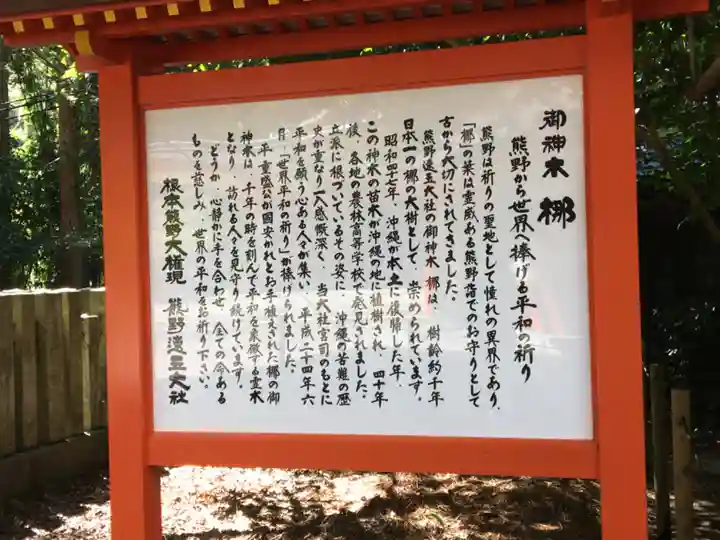 御神木 梛
熊野から世界へ捧げる平和の祈り
熊野は祈りの聖地として憧れの異界であり、
「梛」の葉は霊威ある熊野詣でのお守りとして
古から大切にされてきました。
熊野速玉大社の御神木 梛は、樹齢約千年
日本一の梛の大樹として、崇められています。
昭和四七年、沖縄が本土に復帰した年、
この神木の苗木が沖縄の地に植樹され、四十年
後、各地の農林高等学校で発見されました。
立派に根づいているその姿に、沖縄の苦難の歴
史が重なり一入感慨深く、当大社宮司のもとに
平和を願う心ある人々が集い、平成二十四年六
月、「世界平和の祈り」が捧げられました。
平重盛公が国安かれとお手植えされた梛の御
神木は、千年の時を刻んで平和を象徴する霊木
となり、訪れる人々を見守り続けています。
どうか、心静かに手を合わせ、全ての命ある
ものを慈しみ、世界の平和をお祈り下さい。
根本熊野大権現 熊野速玉大社